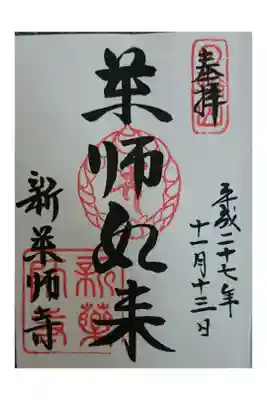 奉拝
平成二十七年
十一月十三日
薬師如来
新薬師寺